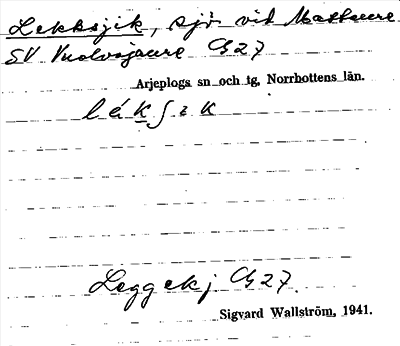 Lekksjik, sjö vid Mattaure
SV Vuolvojaure G27
Arjeplogs sn och tg, Norrbottens län.
lák∫ik
Leggekj G27.
Sigvard Wallström, 1941.